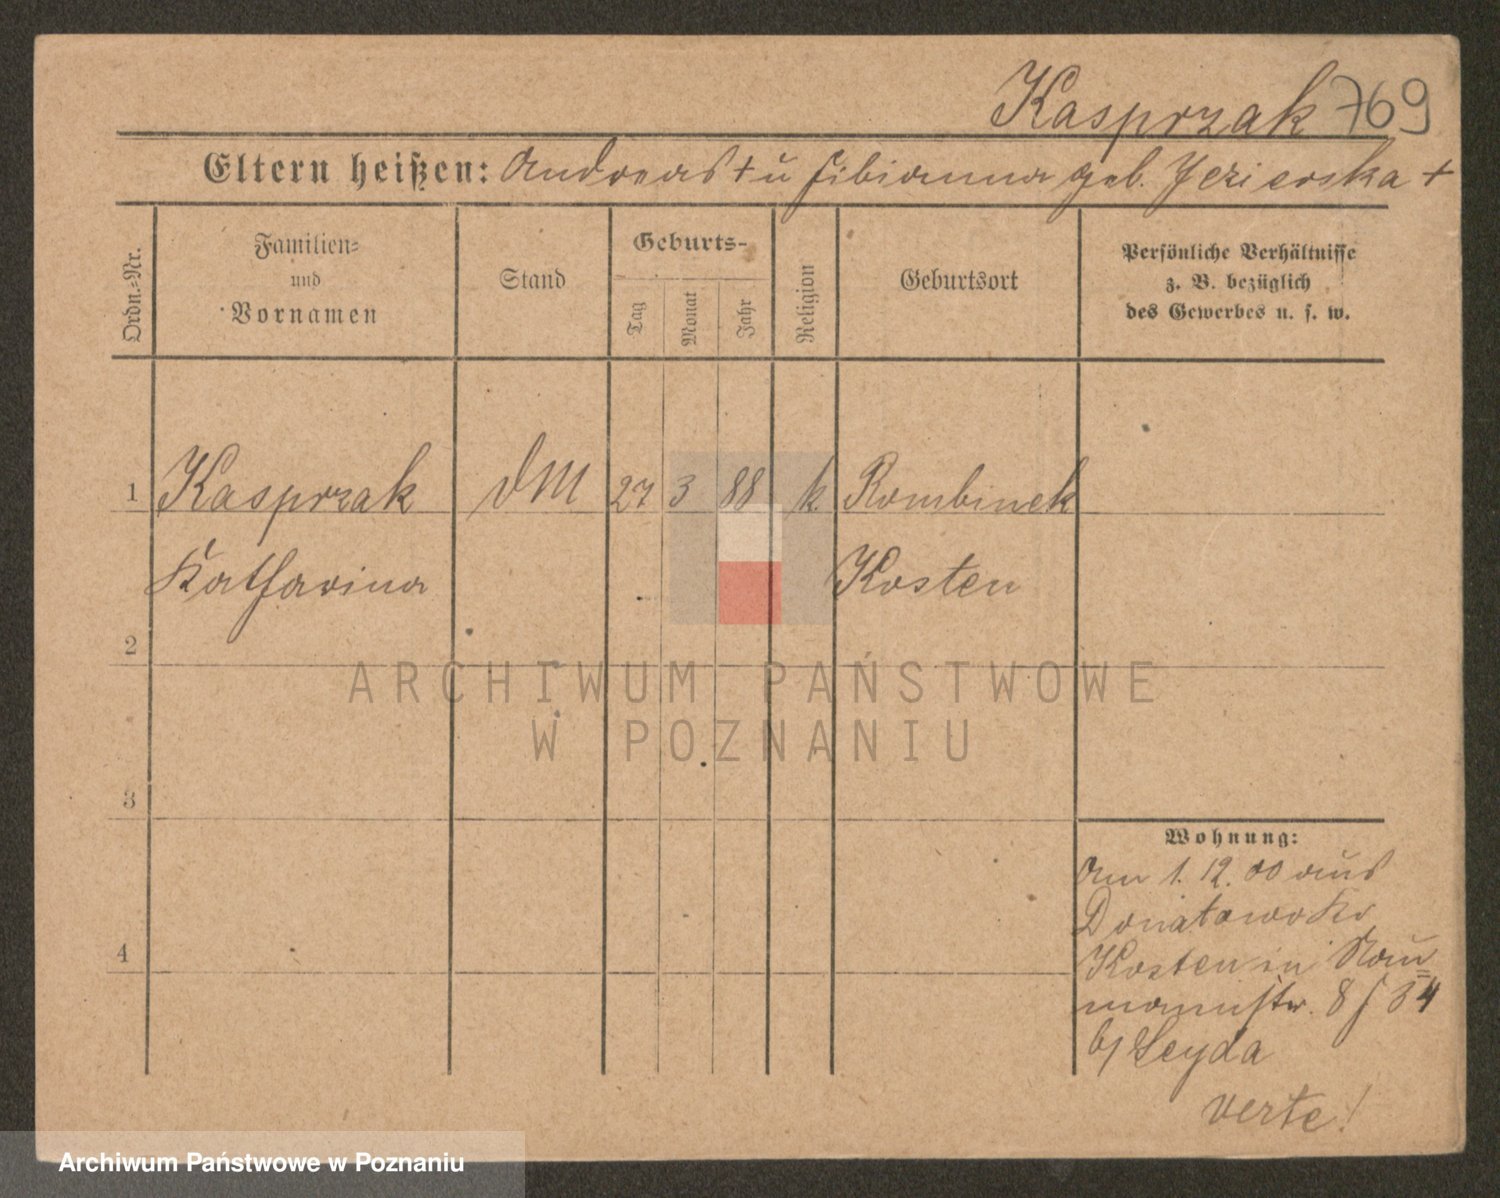 Kasprzak 769
Eltern heißen: Andreas + u Bibianna geb. Jezierska +
Ordn.=Nr.
Familien=
und
Vornamen
Stand
Geburts-
Tag
Monat
Jahr
Religion
Geburtsort
Persönliche Verhältnisse
z. B. bezüglich
des Gewerbes u. s. w.
1 Kasprzak DM 27 3 88 k. Rombinek
Katharina Kosten
2
3
4
Wohnung:
Am 1. 12. 00 aus
Donatowo Kr
Kosten in Nau=
mannstr. 8
b/ Seyda
verte!
ARCHIWUM PAŃSTWOWE
W POZNANIU
Archiwum Państwowe w Poznaniu